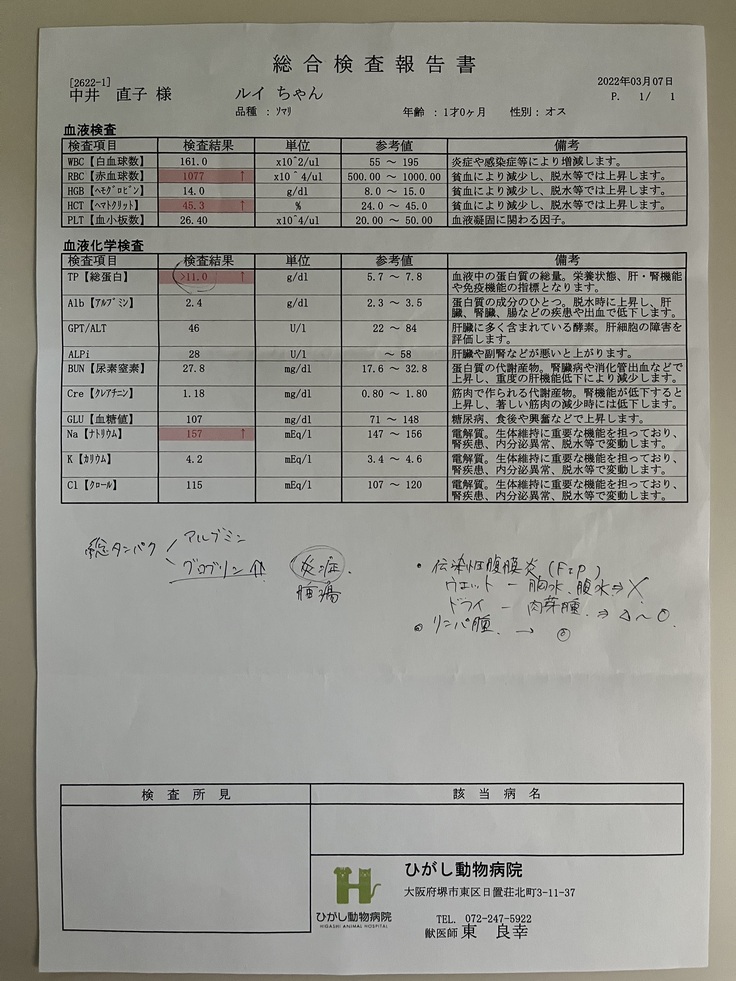 総合検査報告書
[2622-1]
中井 直子 様 ルイ ちゃん
2022年03月07日
P. 1/ 1
品種 : ｿﾏﾘ 年齢 : 1才0ヶ月 性別: オス
血液検査
検査項目 検査結果 単位 参考値 備考
WBC【白血球数】 161.0 x10^2/ul 55 ～ 195 炎症や感染症等により増減します。
RBC【赤血球数】 1077 ↑ x10^4/ul 500.00 ～ 1000.00 貧血により減少し、脱水等では上昇します。
HGB【ﾍﾓｸﾞﾛﾋﾞﾝ】 14.0 g/dl 8.0 ～ 15.0 貧血により減少し、脱水等では上昇します。
HCT【ﾍﾏﾄｸﾘｯﾄ】 45.3 ↑ % 24.0 ～ 45.0 貧血により減少し、脱水等では上昇します。
PLT【血小板数】 26.40 x10^4/ul 20.00 ～ 50.00 血液凝固に関わる因子。
血液化学検査
検査項目 検査結果 単位 参考値 備考
TP【総蛋白】 >11.0 ↑ g/dl 5.7 ～ 7.8 血液中の蛋白質の総量。栄養状態、肝・腎機能
や免疫機能の指標となります。
Alb【ｱﾙﾌﾞﾐﾝ】 2.4 g/dl 2.3 ～ 3.5 蛋白質の成分のひとつ。脱水時に上昇し、肝
臓、腎臓、腸などの疾患や出血で低下します。
GPT/ALT 46 U/l 22 ～ 84 肝臓に多く含まれている酵素。肝細胞の障害を
評価します。
ALPi 28 U/l ～ 58 肝臓や副腎などが悪いと上がります。
BUN【尿素窒素】 27.8 mg/dl 17.6 ～ 32.8 蛋白質の代謝産物。腎臓病や消化管出血などで
上昇し、重度の肝機能低下により減少します。
Cre【ｸﾚｱﾁﾆﾝ】 1.18 mg/dl 0.80 ～ 1.80 筋肉で作られる代謝産物。腎機能が低下すると
上昇し、著しい筋肉の減少時には低下します。
GLU【血糖値】 107 mg/dl 71 ～ 148 糖尿病、食後や興奮などで上昇します。
Na【ﾅﾄﾘｳﾑ】 157 ↑ mEq/l 147 ～ 156 電解質。生体維持に重要な機能を担っており、
腎疾患、内分泌異常、脱水等で変動します。
K【ｶﾘｳﾑ】 4.2 mEq/l 3.4 ～ 4.6 電解質。生体維持に重要な機能を担っており、
腎疾患、内分泌異常、脱水等で変動します。
Cl【ｸﾛｰﾙ】 115 mEq/l 107 ～ 120 電解質。生体維持に重要な機能を担っており、
腎疾患、内分泌異常、脱水等で変動します。
総タンパク アルブミン
グロブリン ⇑ 炎症.
腫瘍
・伝染性腹膜炎 (FIP)
ウェット － 胸水、腹水 ⇒ ×
ドライ － 肉芽腫. ⇒ △～○.
・リンパ腫. →
検査所見 該当病名
ひがし動物病院
HIGASHI ANIMAL HOSPITAL
ひがし動物病院
大阪府堺市東区日置荘北町3-11-37
TEL. 072-247-5922
獣医師 東 良幸